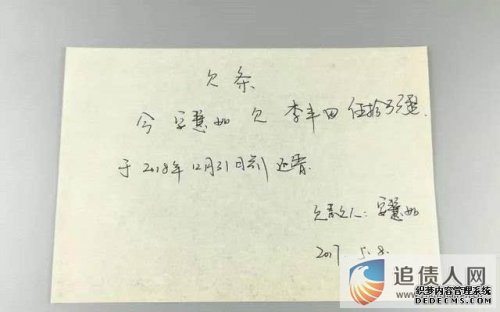 欠条
今 安慧如 欠 李丰田 伍拾万整.
于2018年12月31日前 还清.
欠款人: 安慧如
2017 5.8.
追债人网
织梦内容管理系统
DEDECMS.COM